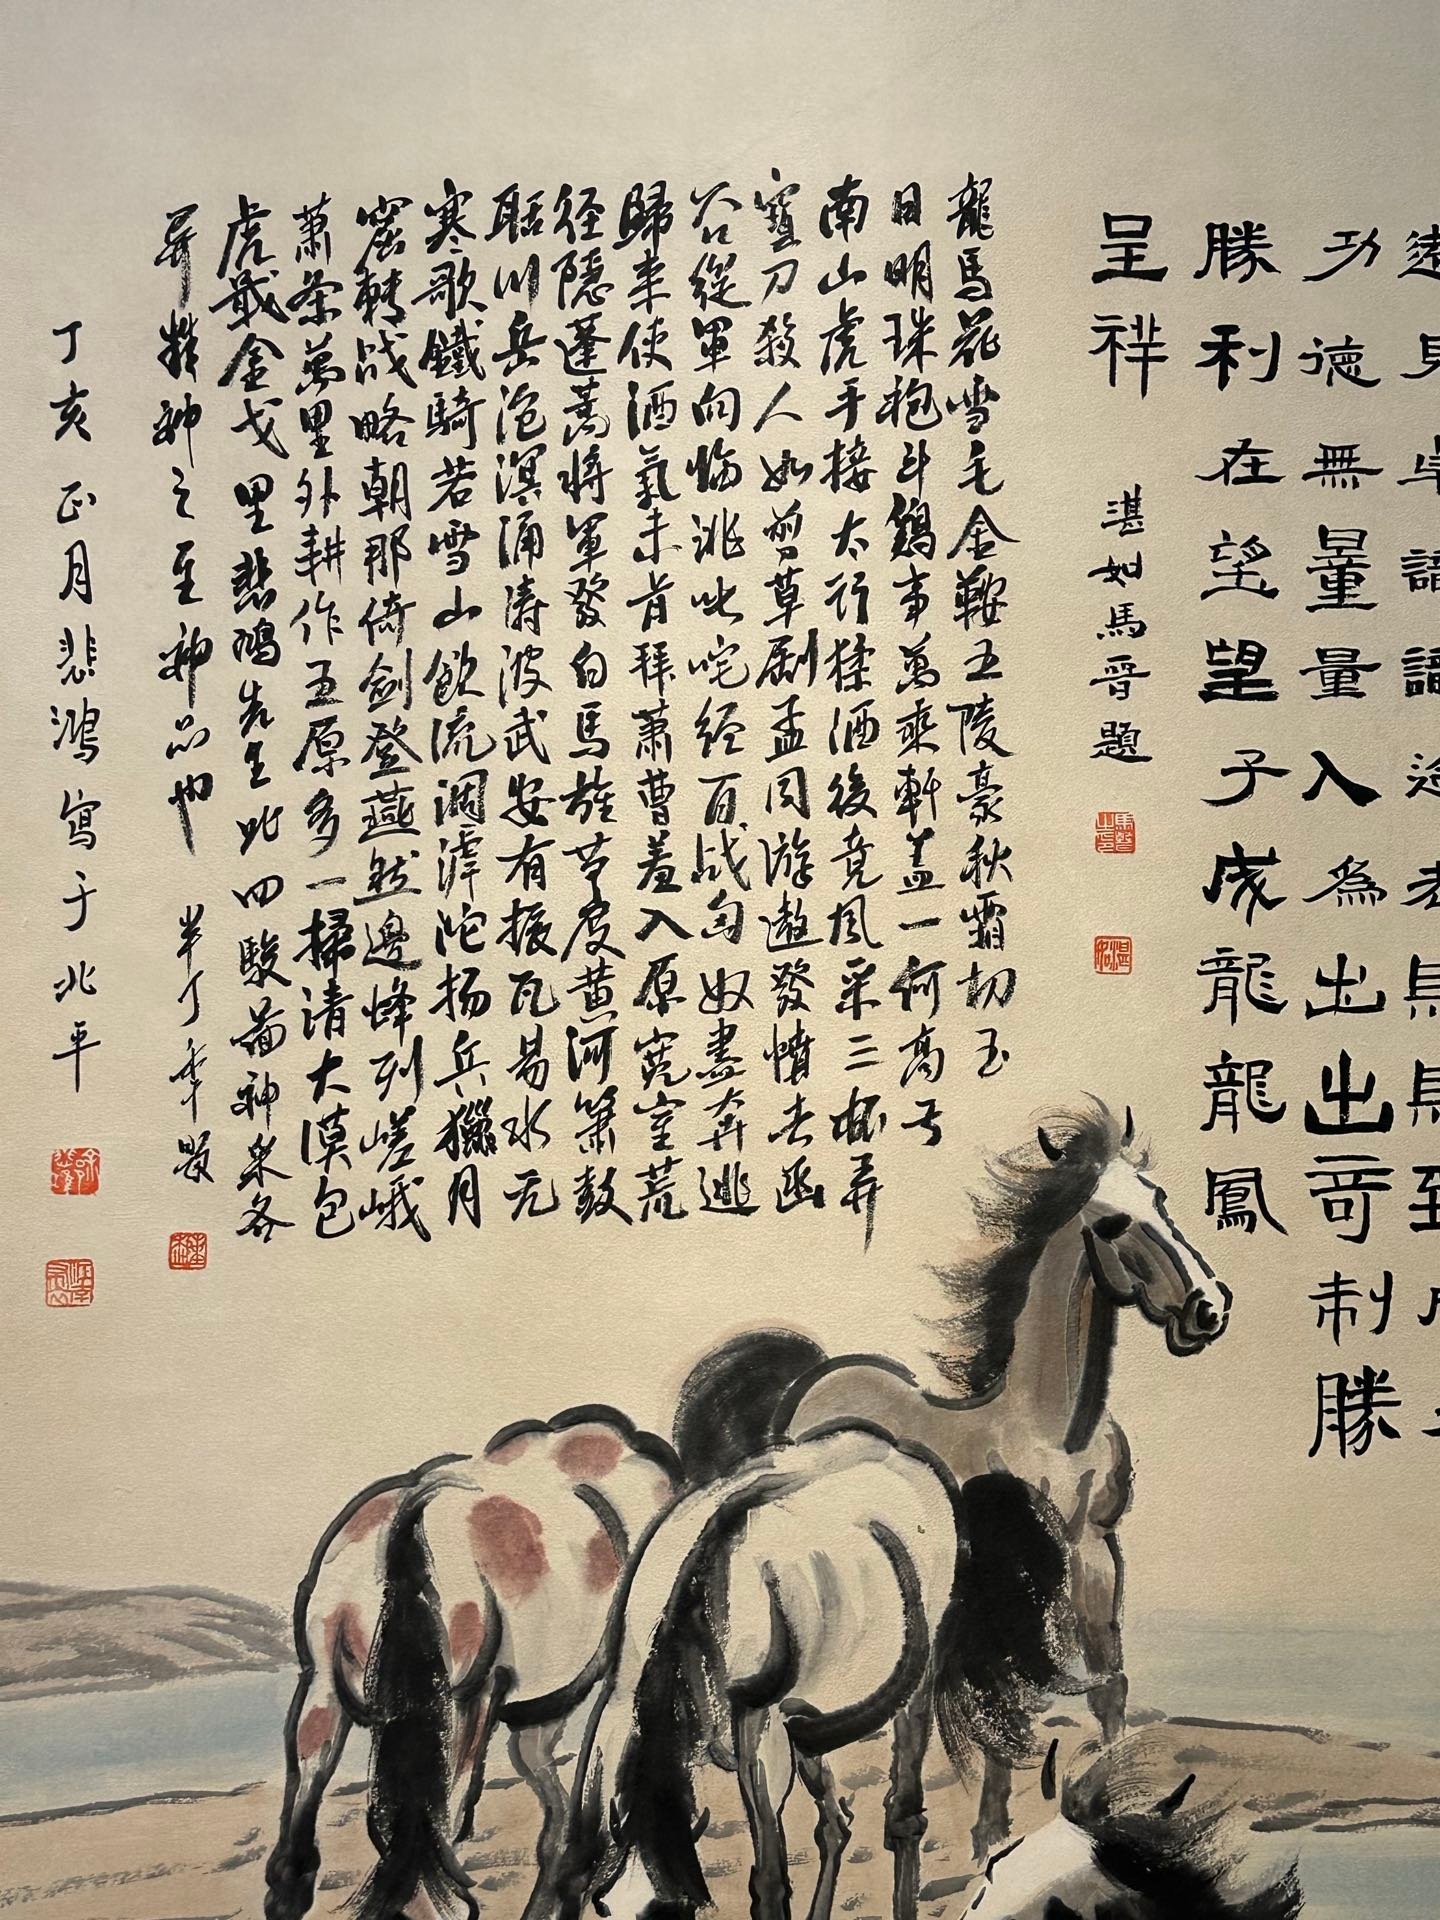 遠見卓識識途老馬馬到成
功德無量量入為出出奇制勝
勝利在望望子成龍龍鳳
呈祥
湛如馬晋題
龍馬花雪毛金鞍五陵豪秋霜切玉
日明珠袍斗鷄事萬乘軒蓋一何高弓
南山虎手接太行猱酒後竟風采三杯弄
寶刀殺人如剪草劇孟同游遨發憤去函
谷從軍向臨洮叱咤經百战匈奴盡奔逃
歸来使酒氣未肯拜蕭曹羞入原憲室荒
径隱蓬蒿将軍發白馬旌节度黄河簫鼓
聒川岳沧溟涌濤波武安有振瓦易水无
寒歌鐵騎若雪山飲流涸滹沱扬兵獵月
窟轉战略朝那倚劍登燕然邊烽列嵯峨
蕭条萬里外耕作五原多一掃清大漠包
虎戢金戈 悲鴻先生此四駿啚神采各
异精神之至神品也 半丁年題
丁亥正月悲鴻寫于北平